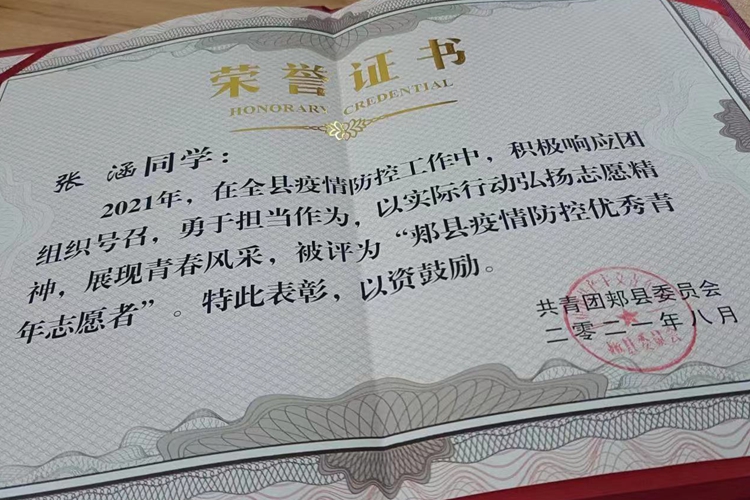 荣誉证书
HONORARY CREDENTIAL
张涵同学：
2021年，在全县疫情防控工作中，积极响应团
组织号召，勇于担当作为，以实际行动弘扬志愿精
神，展现青春风采，被评为“郏县疫情防控优秀青
年志愿者”。特此表彰，以资鼓励。
共青团郏县委员会
二零二一年八月